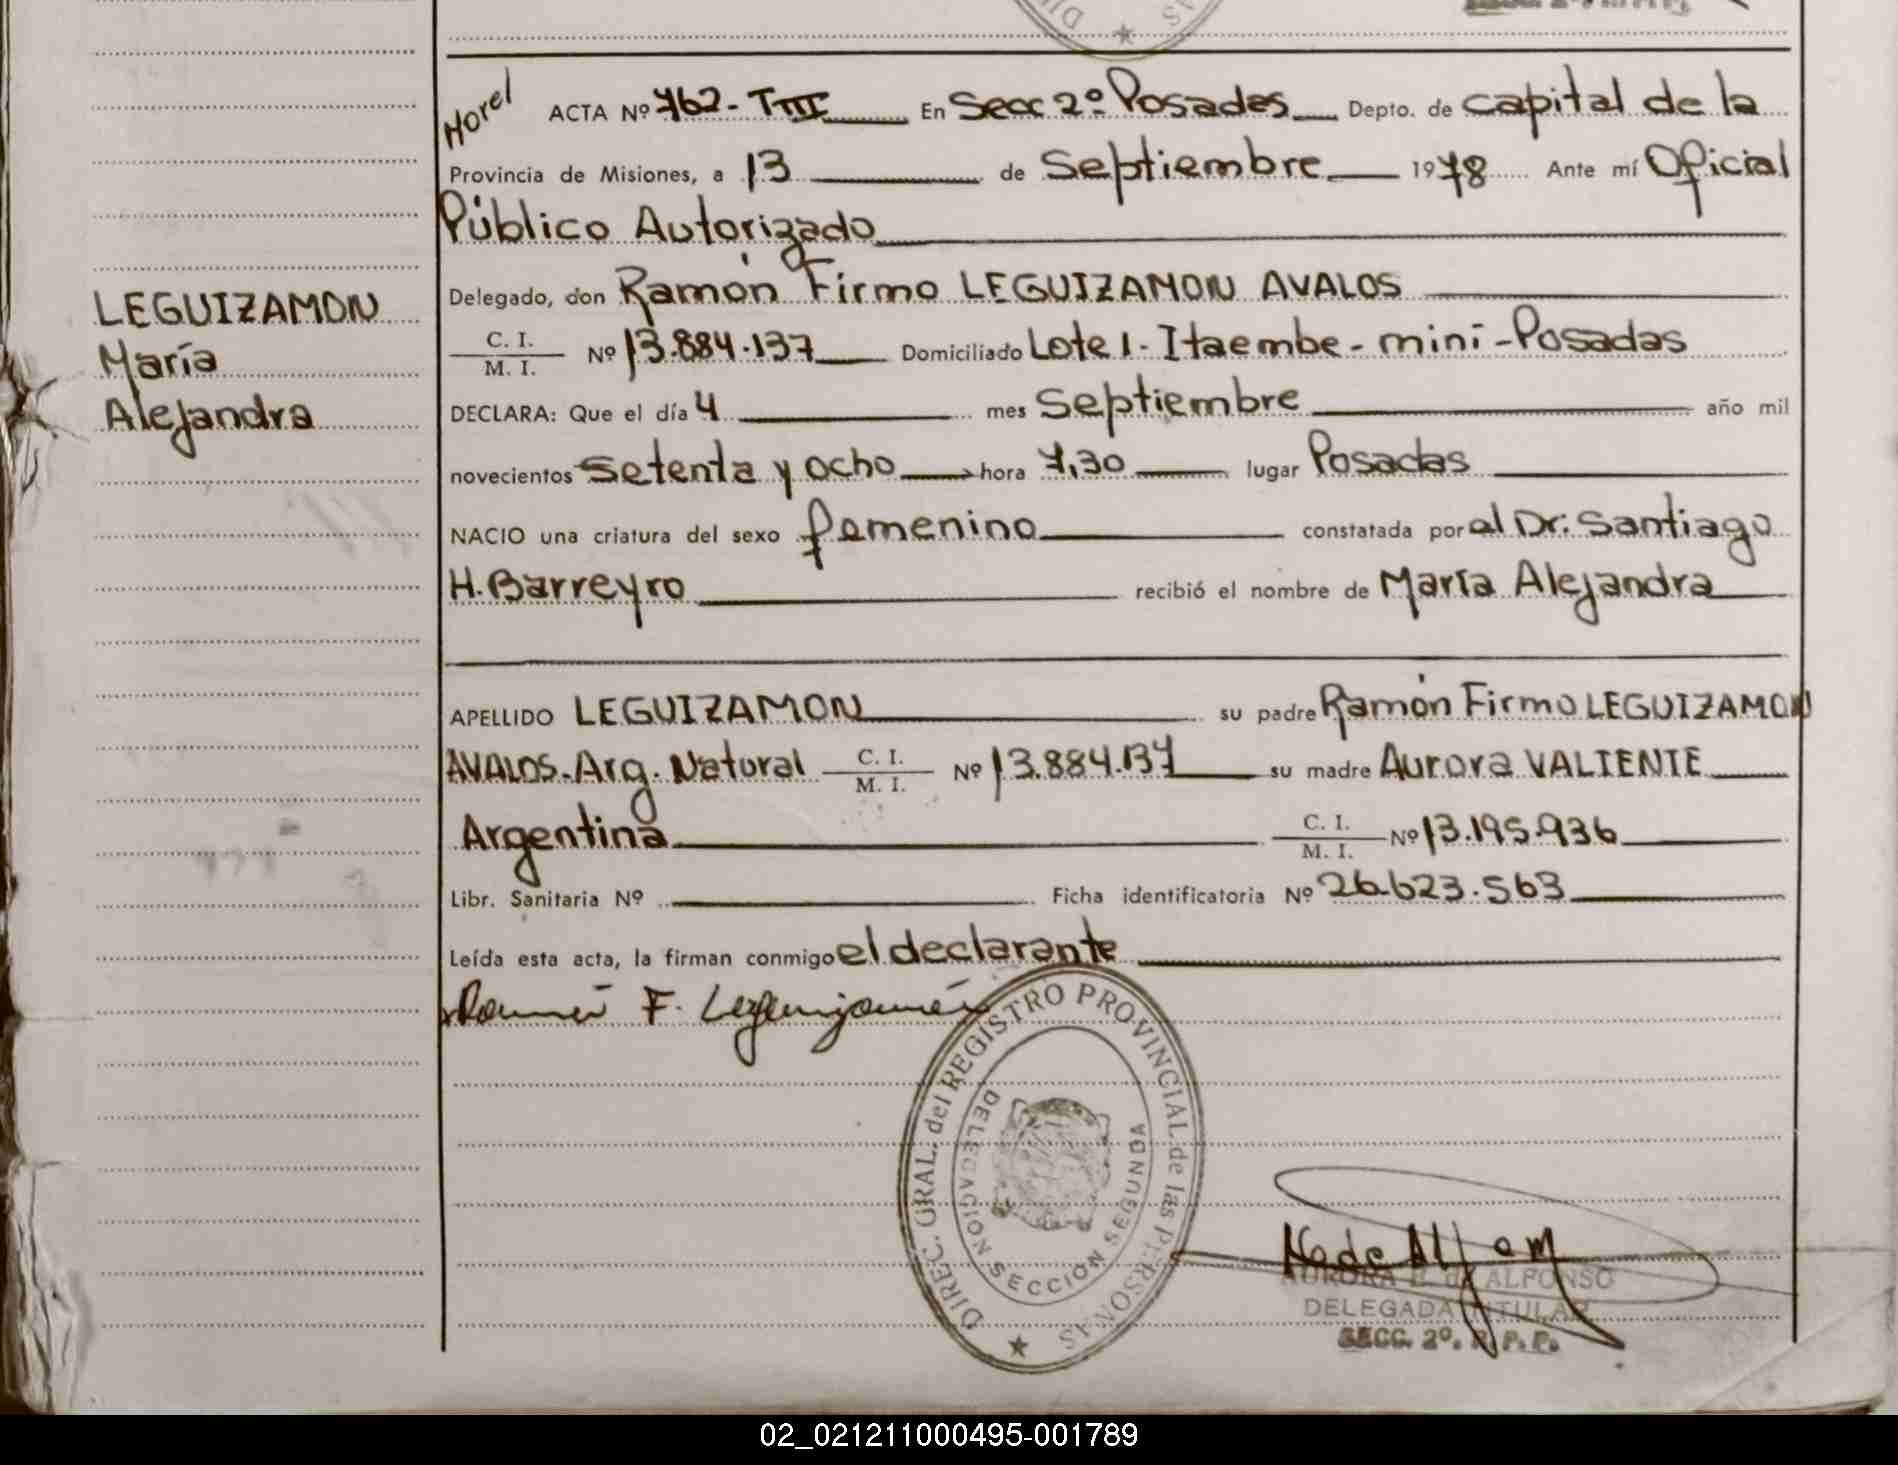 Horel
ACTA Nº 762 - TIII En Secc 2º Posadas Depto. de Capital de la
Provincia de Misiones, a 13 de Septiembre 1978 Ante mí Oficial
Público Autorizado
Delegado, don Ramón Firmo LEGUIZAMON AVALOS
LEGUIZAMON
María
Alejandra
C. I.
M. I. Nº 13.884.137 Domiciliado Lote 1 - Itaembe - mini - Posadas
DECLARA: Que el día 4 mes Septiembre año mil
novecientos Setenta y ocho hora 7,30 lugar Posadas
NACIO una criatura del sexo femenino constatada por el Dr: Santiago
H. Barreyro recibió el nombre de María Alejandra
APELLIDO LEGUIZAMON su padre Ramón Firmo LEGUIZAMON
AVALOS - Arg. Natural C. I. M. I. Nº 13.884.137 su madre Aurora VALIENTE
Argentina C. I. M. I. Nº 13.195.936
Libr. Sanitaria Nº Ficha identificatoria Nº 26.623.563
Leída esta acta, la firman conmigo el declarante
Ramón F. Leguizamón
DIREC. GRAL. del REGISTRO PROVINCIAL de las PERSONAS
DELEGACION SECCION SEGUNDA
AURORA de ALFONSO
DELEGADA TITULAR
SECC. 2º. R. P. P.
02_021211000495-001789